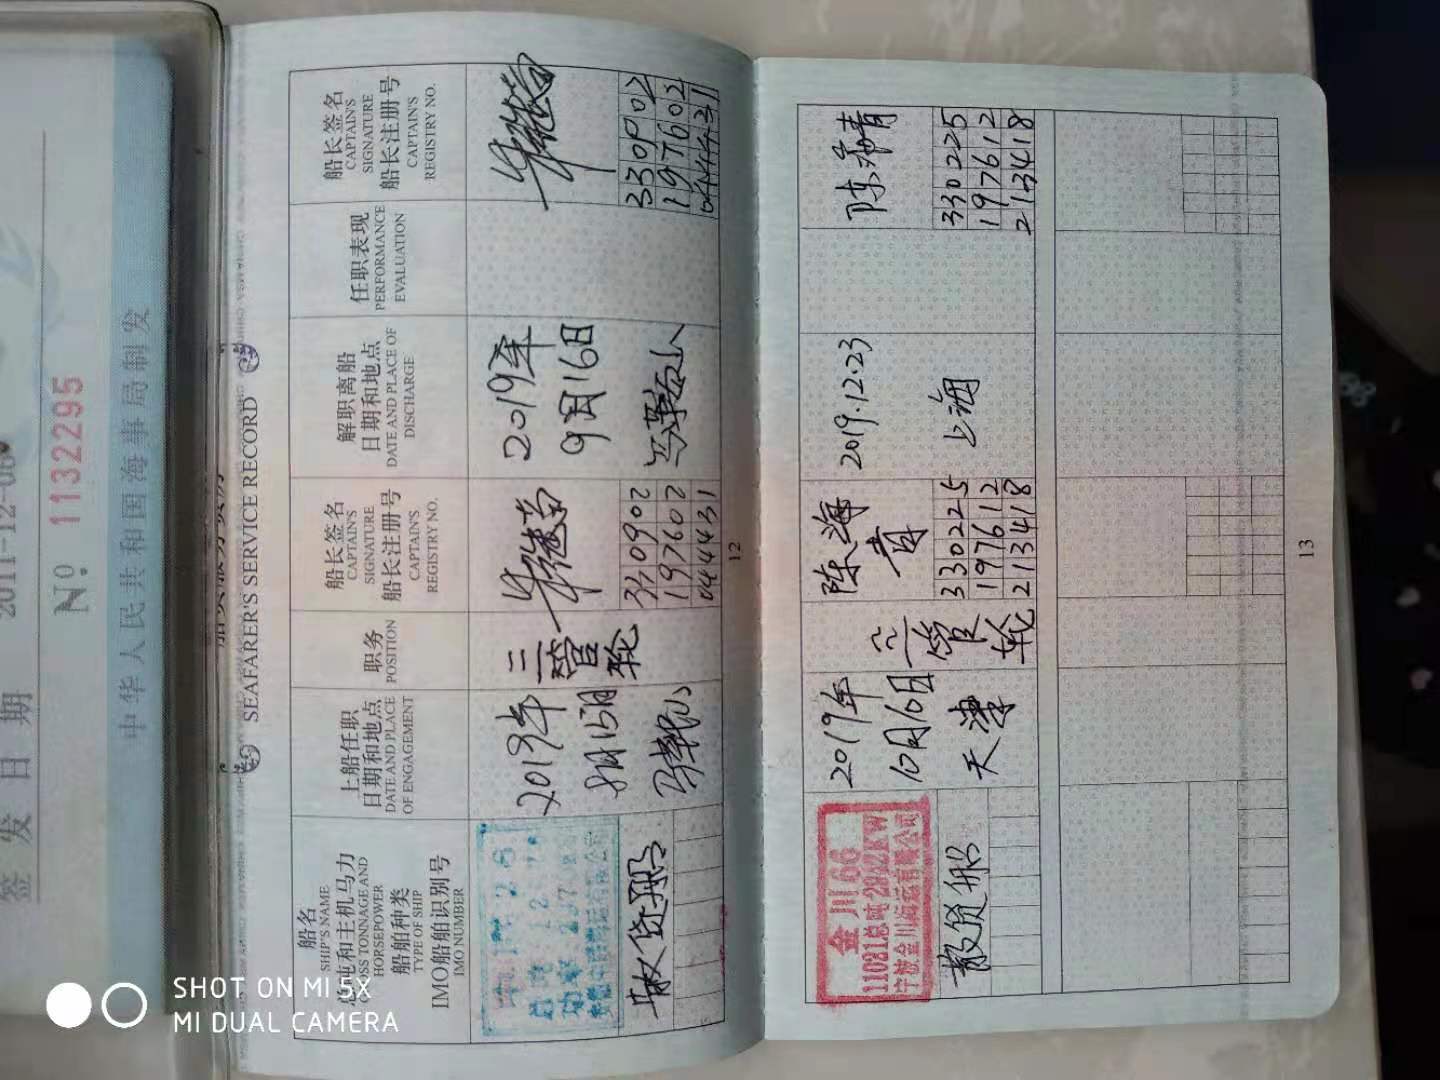 签发日期 2011-12-06
No. 1132295
中华人民共和国海事局制发
SEAFARER'S SERVICE RECORD
船名
SHIP'S NAME
总吨和主机马力
GROSS TONNAGE AND
HORSEPOWER
船舶种类
TYPE OF SHIP
IMO船舶识别号
IMO NUMBER
上船任职
日期和地点
DATE AND PLACE
OF ENGAGEMENT
职务
POSITION
船长签名
CAPTAIN'S
SIGNATURE
船长注册号
CAPTAIN'S
REGISTRY NO.
解职离船
日期和地点
DATE AND PLACE OF
DISCHARGE
任职表现
PERFORMANCE
EVALUATION
船长签名
CAPTAIN'S
SIGNATURE
船长注册号
CAPTAIN'S
REGISTRY NO.
散货船
2019年
8月15日
马鞍山
三管轮
330902
197602
044431
2019年
9月16日
马鞍山
330902
197602
044431
12
金川66
11021总吨2942KW
宁波金川海运有限公司
散货船
2019年
10月10日
天津
二管轮
陈海青
330225
197612
213418
2019.12.23
上海
陈海青
330225
197612
213418
13
SHOT ON MI 5X
MI DUAL CAMERA